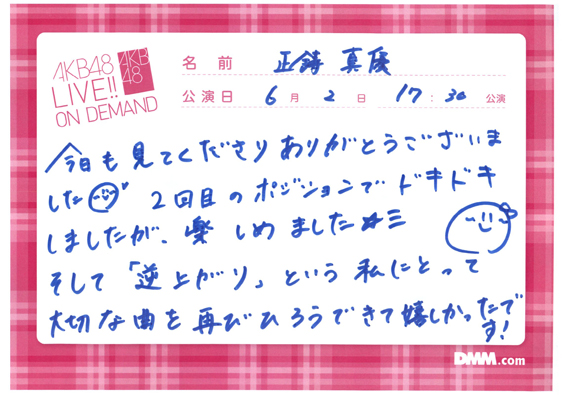 AKB48
LIVE!!
ON DEMAND
AKB
48
名前 正鋳真優
公演日 6月2日 17:30公演
今日も見てくださりありがとうございま
した 2回目のポジションでドキドキ
しましたが、楽しめました☆三
そして「逆上がり」という私にとって
大切な曲を再びひろうできて嬉しかったで
す!
DMM.com